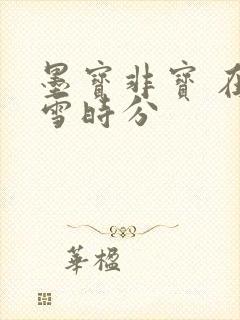 墨寶非寶 在
雪時分
華楹